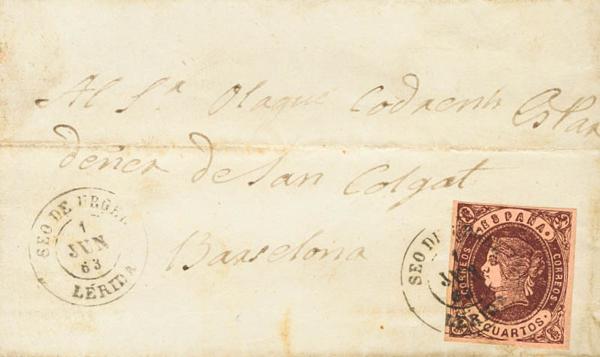 Al Sr Olaque Codreni Estan
dener de San Colgat
Barcelona
SEO DE URGEL
1
JUN
63
LÉRIDA
SEO DE
1
JUN
ESPAÑA
CORREOS
CORREOS
CUARTOS